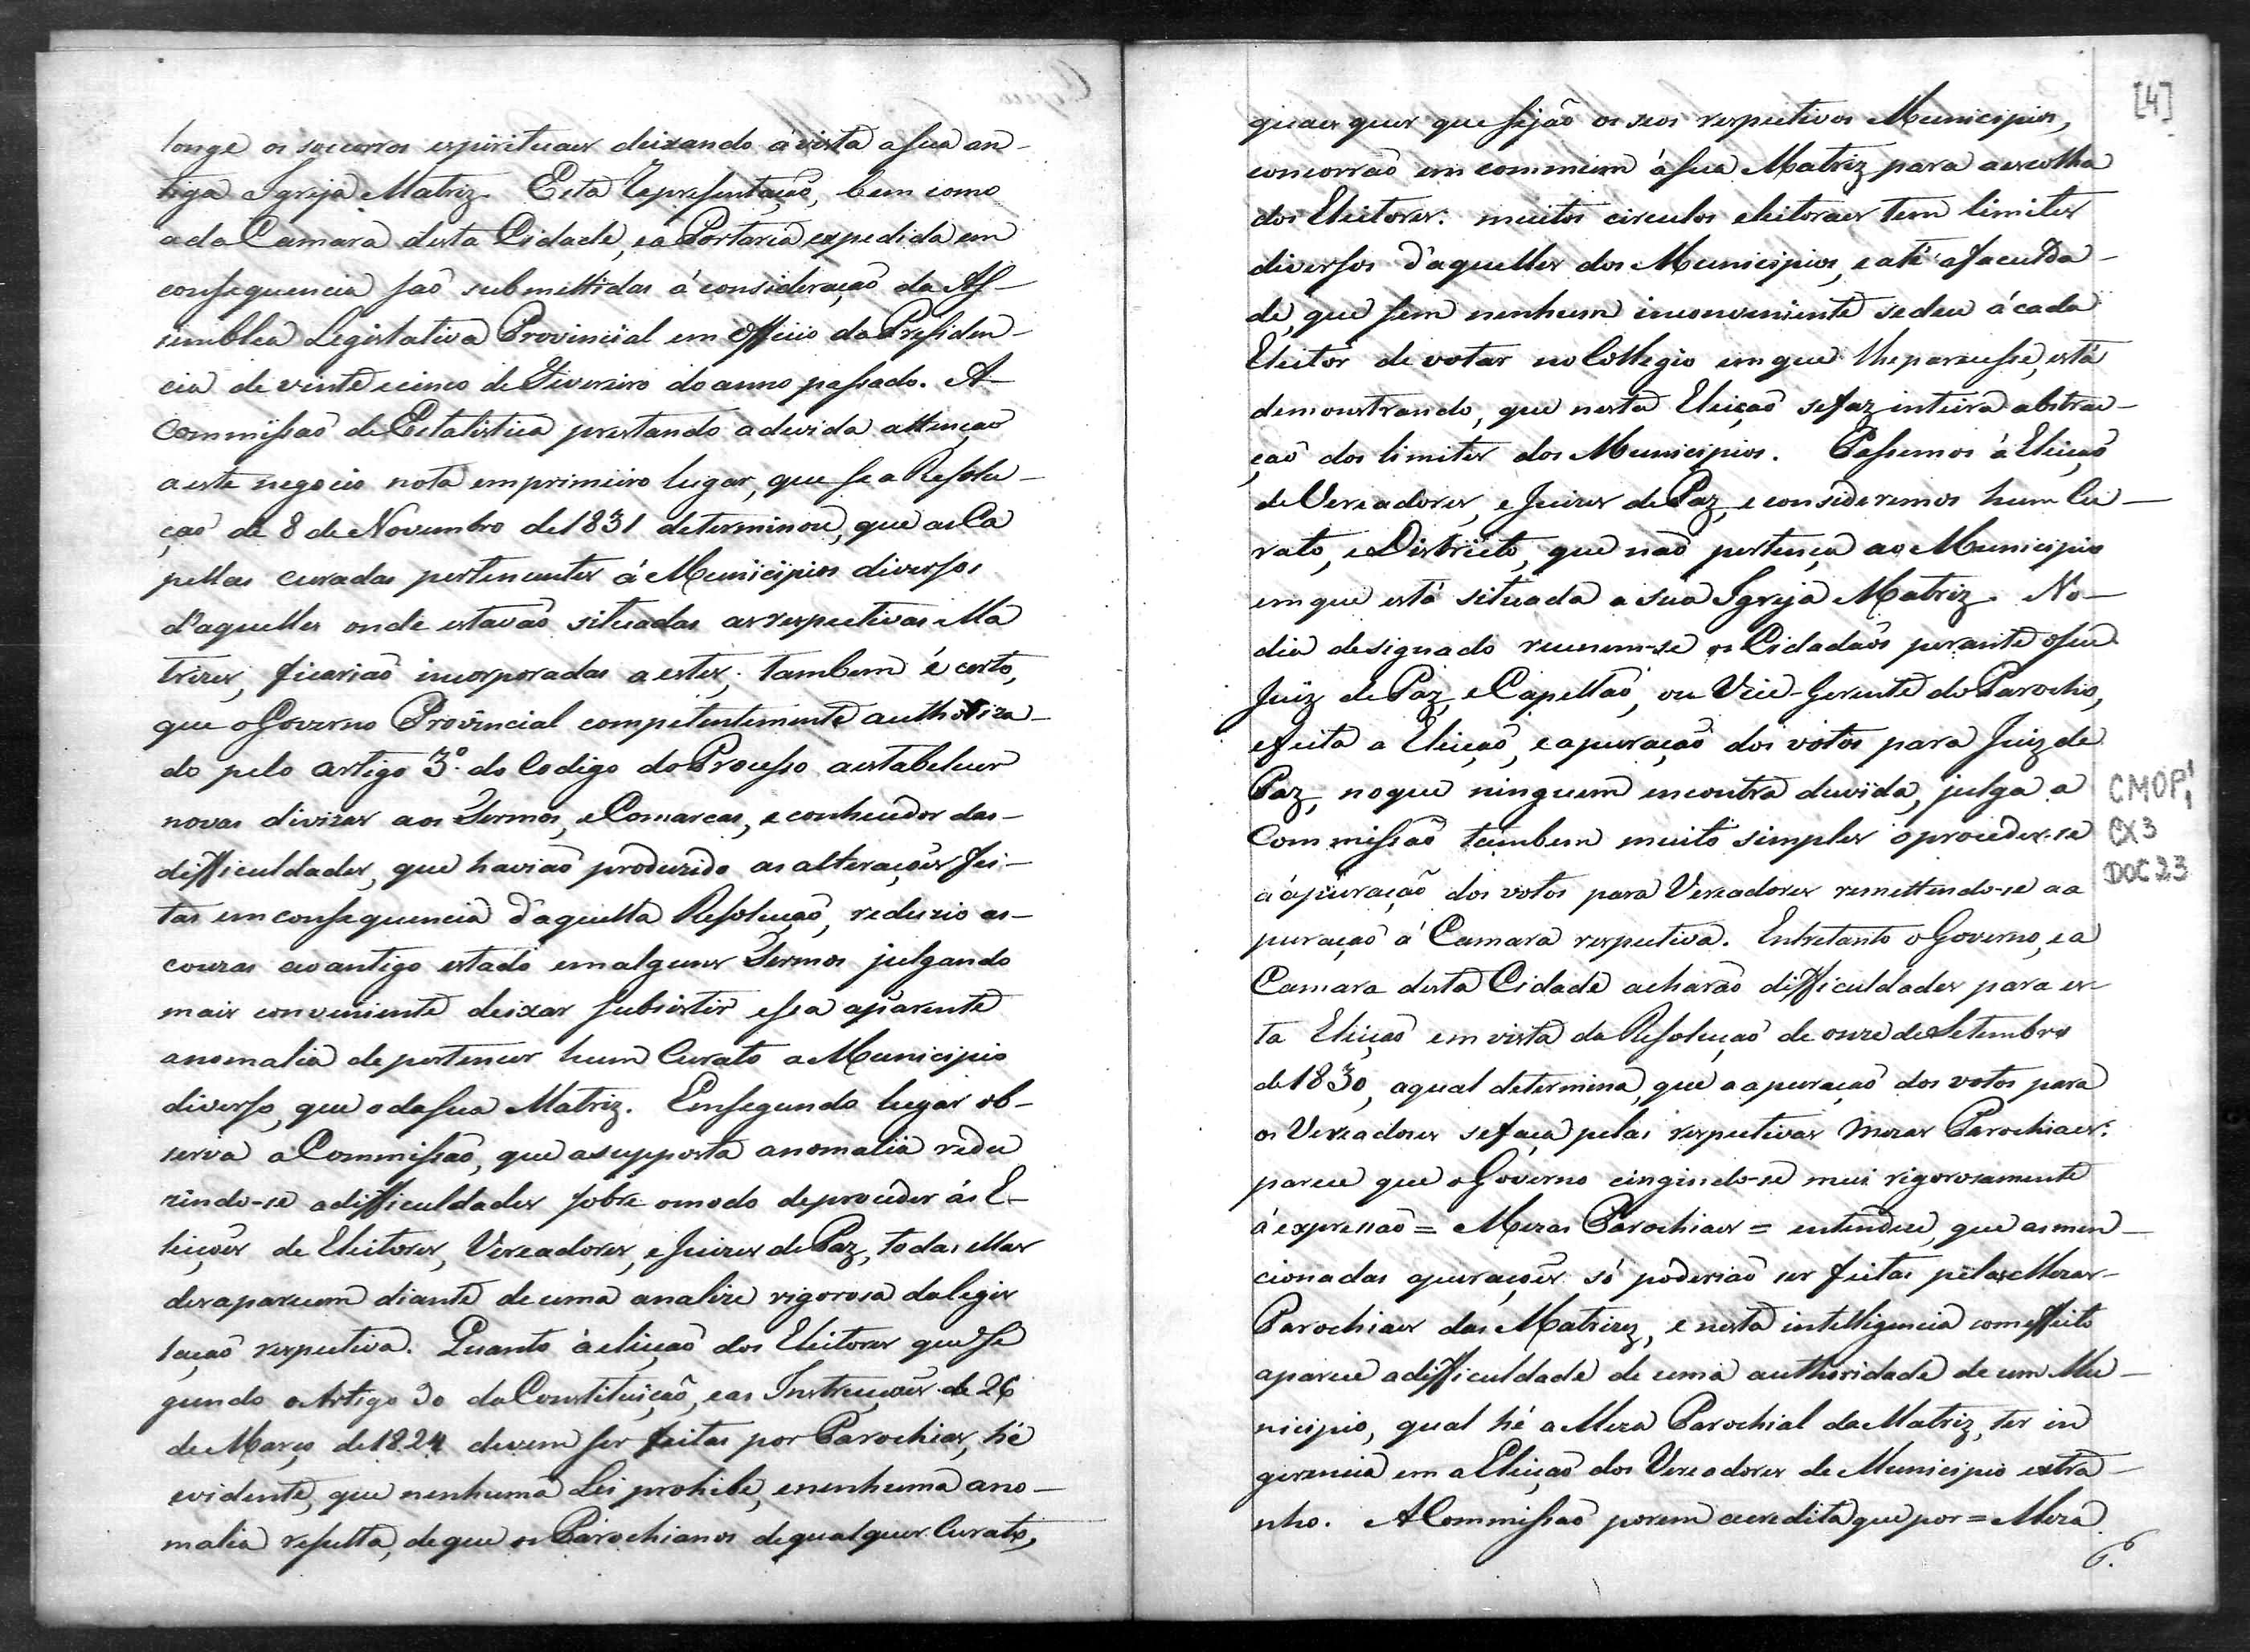 longe os soccorros espirituaes deixando á vista a sua an-
tiga Igreja Matriz. Esta Representação, bem como
a da Camara desta Cidade, e a Portaria expedida em
consequencia são submettidas á consideração da As-
semblea Legislativa Provincial em Officio da Presiden-
cia de vinte e cinco de Fevereiro do anno passado. A
Commissão de Estatistica prestando a devida attenção
a este negocio nota em primeiro lugar, que se a Resolu-
ção de 8 de Novembro de 1831 determinou, que as Ca
pellas curadas pertencentes á Municipios diversos
d'aquelles onde estavão situadas as respectivas Ma
trizes, ficarião incorporadas a estes; tambem é certo,
que o Governo Provincial competentemente authoriza-
do pelo artigo 3º do Codigo do Processo a estabelecer
novas divizas aos Termos, e Comarcas, e conhecedor das-
difficuldades, que havião produzido as alterações fei-
tas em consequencia d'aquella Resolução, reduzio as-
couzas ao antigo estado em alguns Termos julgando
mais conveniente deixar subsistir essa aparente
anomalia de pertencer hum Curato a Municipio
diverso, que o da sua Matriz. Em segundo lugar ob-
serva a Commissão, que a supposta anomalia redu
zindo-se a difficuldades sobre o modo de proceder ás E-
leições de Eleitores, Vereadores, e Juizes de Paz, todas ellas
desaparecem diante de uma analize rigorosa da legis
lação respectiva. Quanto á eleição dos Eleitores que se
gundo o Artigo 90 da Constituição, e as Instrucções de 26
de Março de 1824 devem ser feitas por Parochias, hé
evidente, que nenhuma Lei prohibe, e nenhuma ano-
malia resulta, de que os Parochianos de qualquer Curato,
quaes quer que sejão os seos respectivos Municipios,
concorrão em commum á sua Matriz para a escolha
dos Eleitores: muitos circulos eleitoraes tem limites
diversos d'aquelles dos Municipios, e até a faculda-
de, que sem nenhum inconveniente se deu á cada
Eleitor de votar no Collegio em que lhe parecesse, está
demonstrando, que nesta Eleição se faz inteira abstrac-
ção dos limites dos Municipios. Passemos á Eleição
de Vereadores, e Juizes de Paz, e consideremos hum Cu-
rato, e Districto, que não pertença ao Municipio
em que está situada a sua Igreja Matriz. No-
dia designado reunem-se os Cidadãos perante o seu
Juiz de Paz, e Capellão, ou Vice-Gerente do Parocho,
e feita a Eleição, e apuração dos votos para Juiz de
Paz, no que ninguem encontra duvida, julga a
Commissão tambem muito simples o proceder-se
a apuração dos votos para Vereadores remettendo-se a a
puração á Camara respectiva. Entretanto o Governo, e a
Camara desta Cidade acharão difficuldades para es-
ta Eleição em vista da Resolução de onze de Setembro
de 1830, a qual determina, que a apuração dos votos para
os Vereadores se faça pelas respectivas Mezas Parochiaes:
parece que o Governo cingindo-se mui rigorosamente
á expressão = Mezas Parochiaes = entendeu, que as men-
cionadas apurações só poderião ser feitas pelas Mezas-
Parochiaes das Matrizes, e nesta intelligencia com effeito
aparece a difficuldade de uma authoridade de um Mu-
nicipio, qual hé a Meza Parochial da Matriz, ter in
gerencia em a Eleição dos Vereadores de Municipio extra-
nho. A Commissão porem acredita que por = Meza
P.
[4]
CMOP1
CX3
DOC23